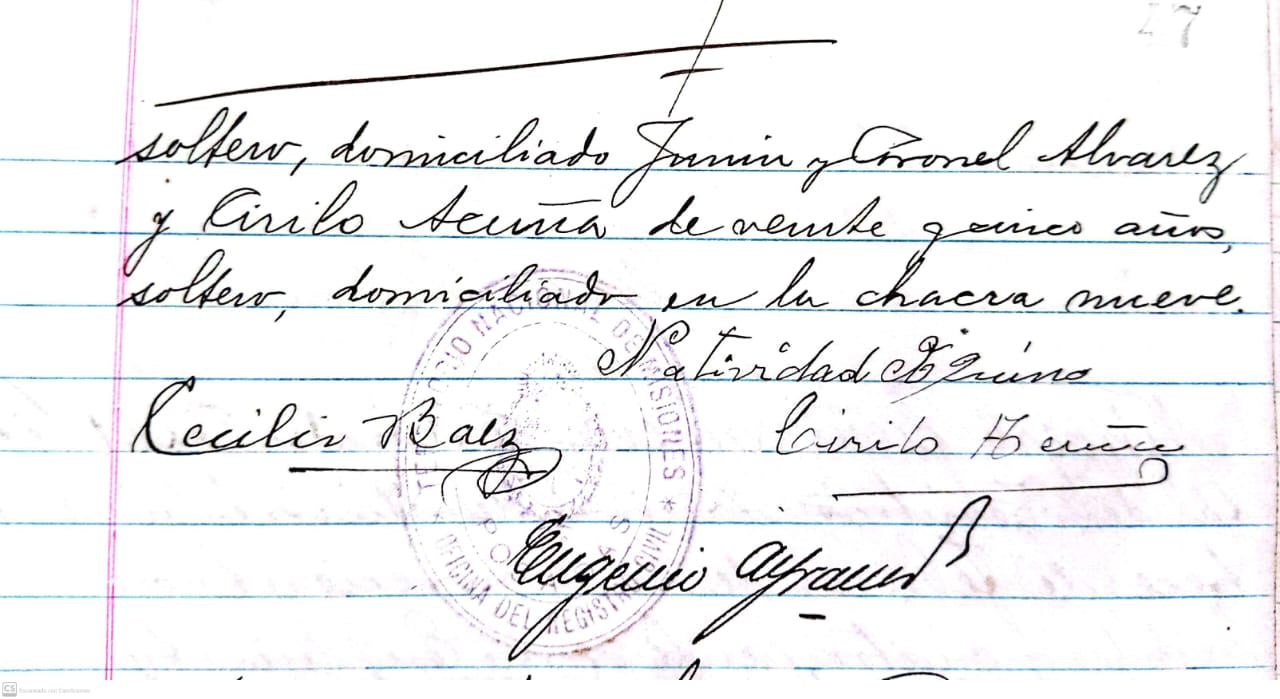 47
soltero, domiciliado Junin y Coronel Alvarez
y Cirilo Acuña de veinte y cinco años,
soltero, domiciliado en la chacra nueve.
Natividad Aquino
Cecilio Baez
Cirilo Acuña
Eugenio
TERRITORIO NACIONAL DE MISIONES
OFICINA DEL REGISTRO CIVIL
POSADAS
CS Escaneado con CamScanner